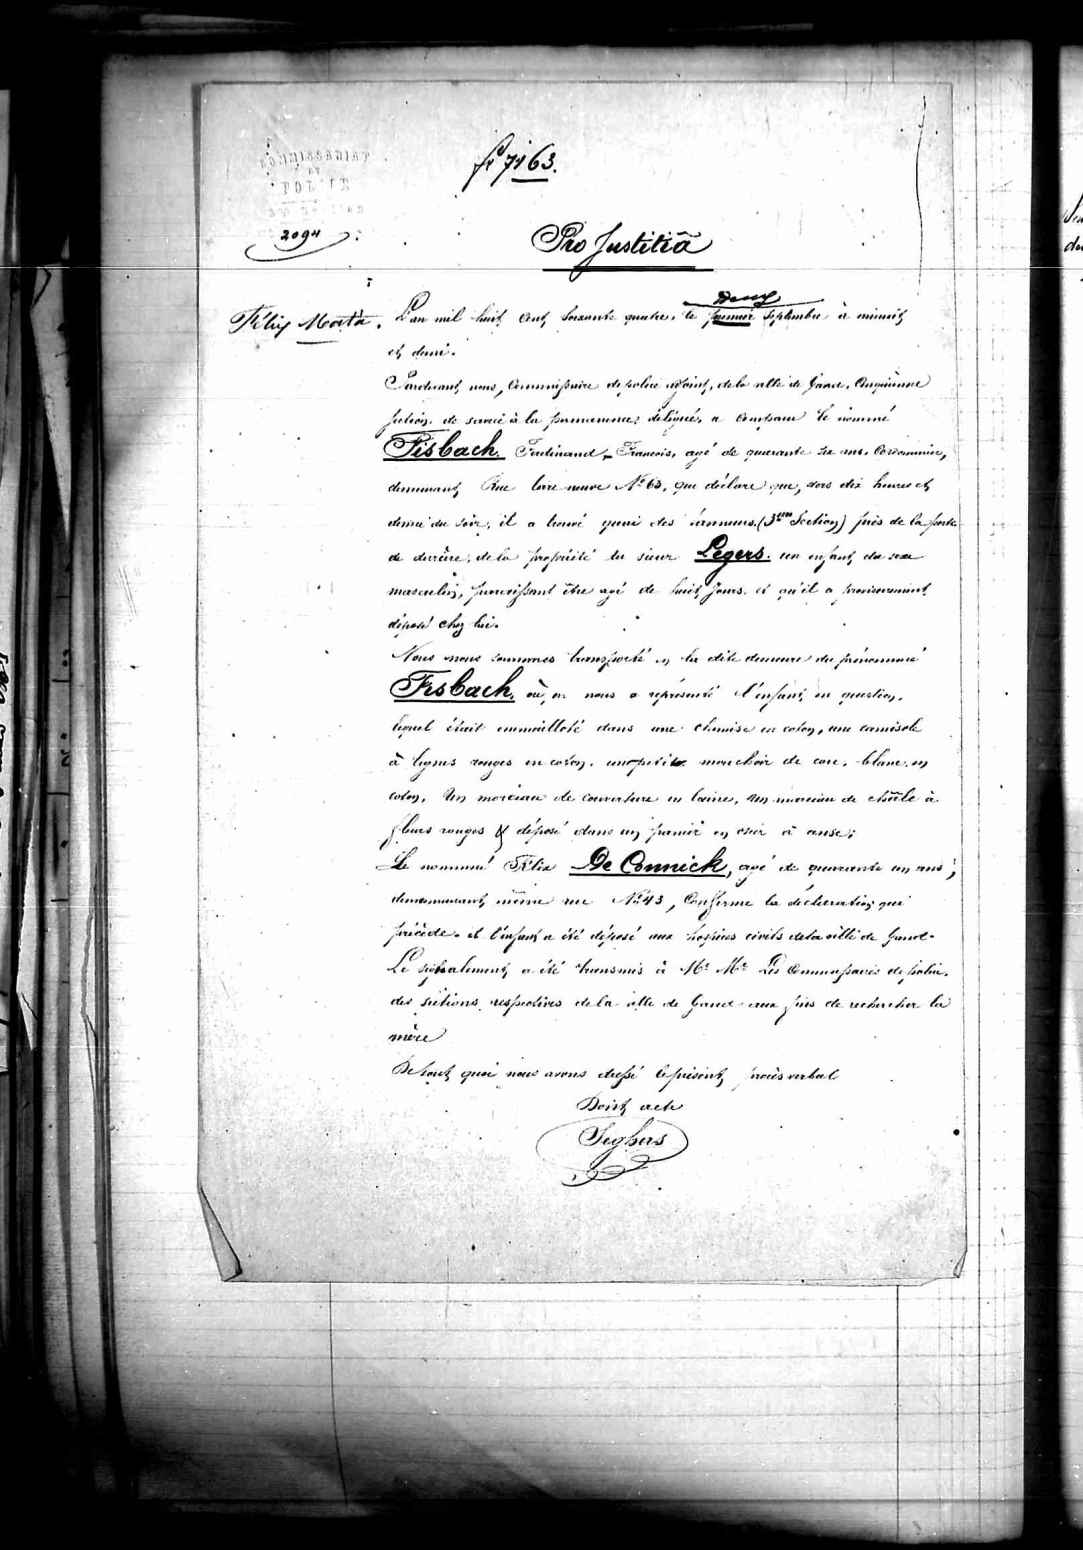 COMMISSARIAT
DE
POLICE
2094
fo 7163.
Pro Justitiâ
Félix Morta.
Deux
L'an mil huit cent soixante quatre, le premier septembre à minuit
et demi.
Pardevant nous, Commissaire de police adjoint, de la ville de Gand, Cinquième
section, de service à la permanence, délégué, a comparu le nommé
Fisbach Ferdinand-François, agé de quarante six ans, Cordonnier,
demeurant, Rue neuve No 63, qui déclare que, vers dix heures et
demie du soir, il a trouvé quai des Tanneurs (3eme Section) près de la porte
de derrière, de la propriété du sieur Legers. un enfant du sexe
masculin, paraissant être agé de huit jours. et qu'il a provisoirement
déposé chez lui.
Nous nous sommes transporté en la dite demeure du prénommé
Fisbach, où on nous a représenté l'enfant en question,
lequel était emmailloté dans une chemise en coton, une camisole
à lignes rouges en coton, un petit mouchoir de cou, blanc, en
coton, Un morceau de couverture en laine, un morceau de châle à
fleurs rouges & déposé dans un panier en osier à anse;
Le nommé Félix De Connick, agé de quarante un ans;
demeurant même rue No 43, Confirme la déclaration qui
précède. et l'enfant a été déposé aux hospices civils de la ville de Gand-
Le signalement a été transmis à Mr Mr Les Commissaires de police
des sections respectives de la ville de Gand aux fins de rechercher la
mère
De tout quoi nous avons dressé le présent procès verbal
Dont acte
Seghers